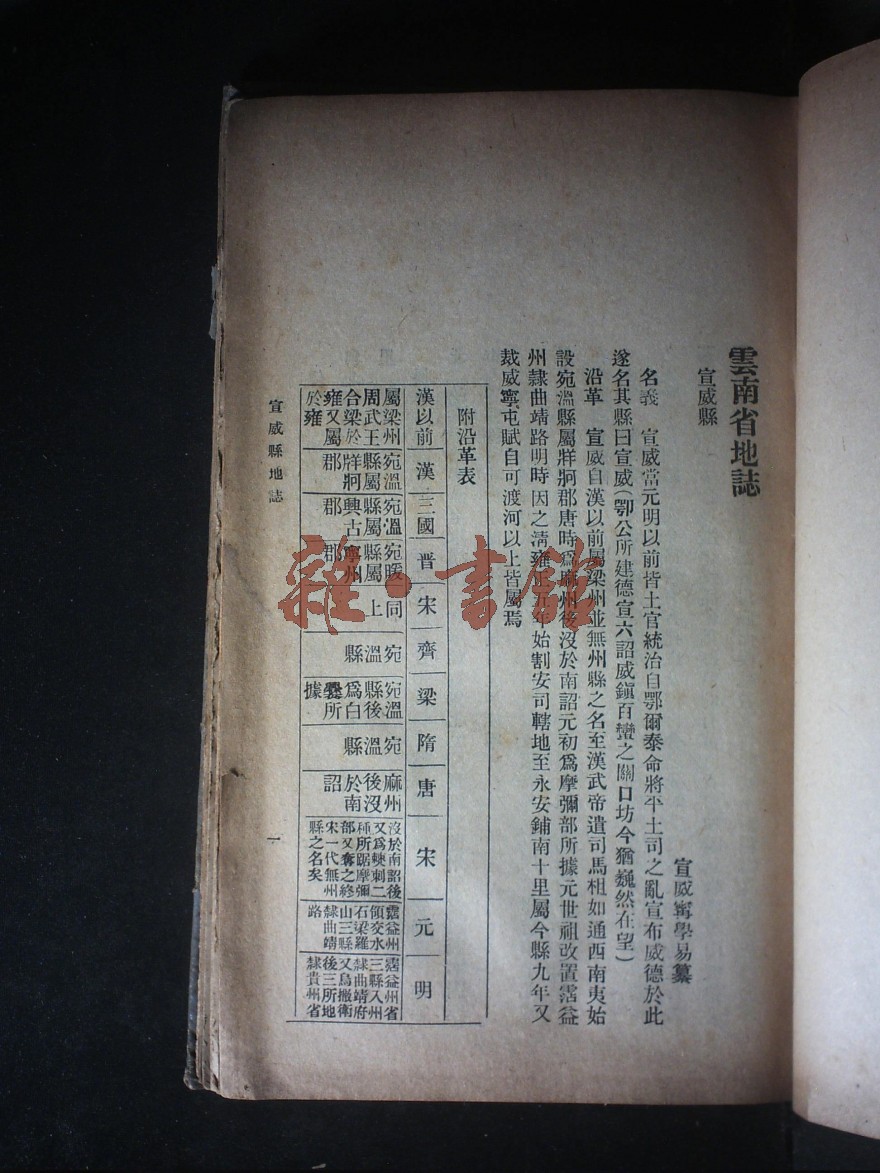 雲南省地誌
宣威縣
宣威甯學易纂
名義　宣威當元明以前皆土官統治自鄂爾泰命將平土司之亂宣布威德於此
遂名其縣曰宣威(鄂公所建德宣六詔威鎮百蠻之關口坊今猶巍然在望)
沿革　宣威自漢以前屬梁州並無州縣之名至漢武帝遣司馬相如通西南夷始
設宛溫縣屬牂牁郡唐時爲麻州後沒於南詔元初爲摩彌部所據元世祖改置霑益
州隸曲靖路明時因之清雍正五年始割安司轄地至永安鋪南十里屬今縣九年又
裁威寧屯賦自可渡河以上皆屬焉
附沿革表
漢以前
漢
三國
晋
宋
齊
梁
隋
唐
宋
元
明
屬梁州
周武王
合梁於
雍又屬
於雍
宛溫
縣屬
牂牁
郡
宛溫
縣屬
興古
郡
宛暖
縣屬
寧州
郡
同
上
宛
溫
縣
宛溫
縣後
爲白
爨所
據
宛
溫
縣
麻州
後沒
於南
詔
沒於南詔後
又爲㚇刺二
種所踞摩彌
部又奪之終
宋一代無州
縣之名矣
霑益州
領交水
石梁羅
山三縣
隸曲靖
路
霑益州省
三縣入州
隸曲靖府
又烏撒衛
後三所地
隸貴州省
宣威縣地誌
一
雜·書館